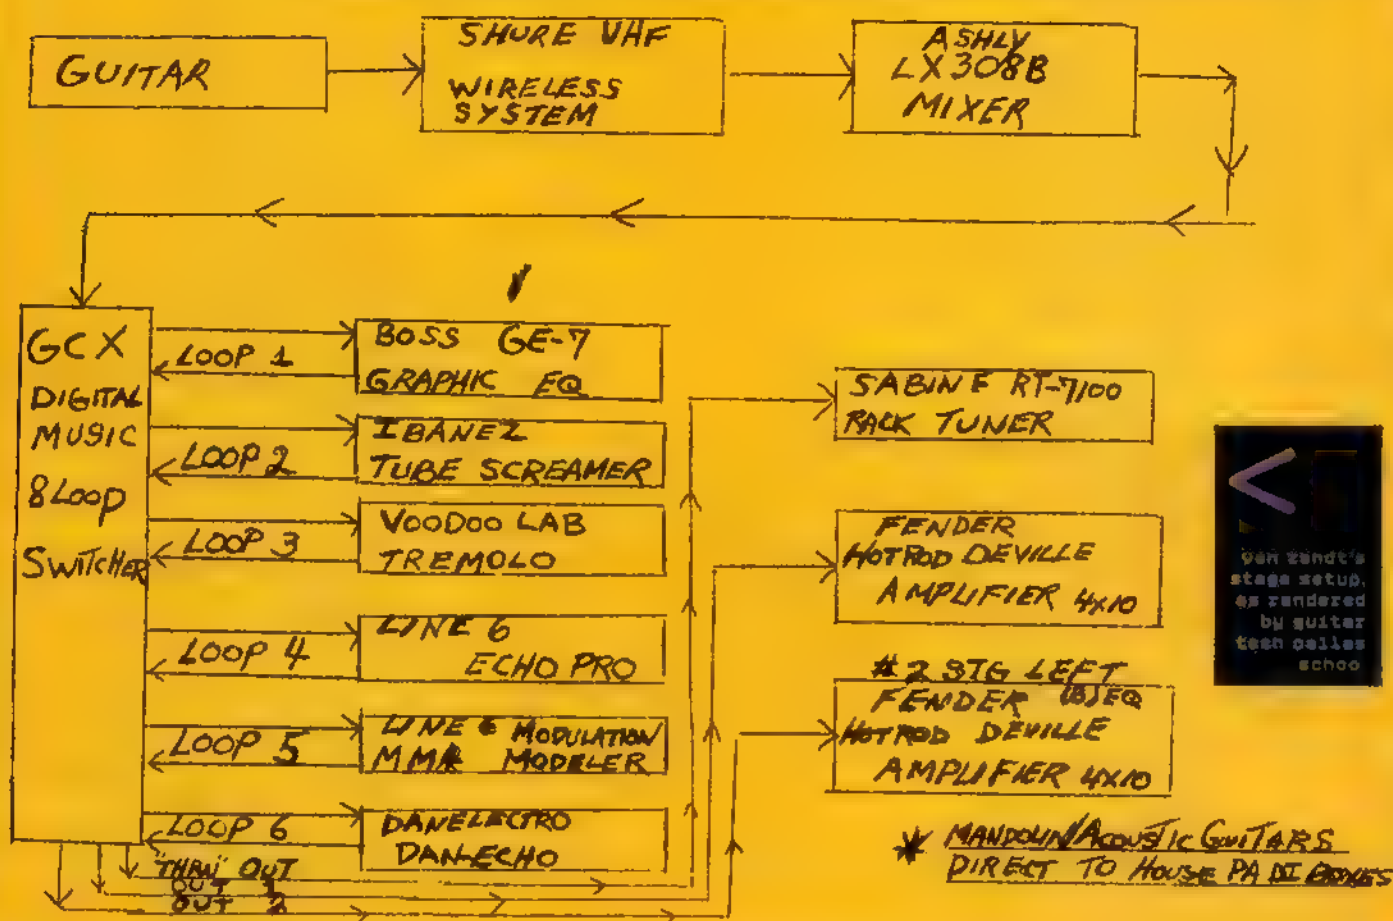 GUITAR
SHURE VHF
WIRELESS
SYSTEM
ASHLY
LX308B
MIXER
GCX
DIGITAL
MUSIC
8 LOOP
SWITCHER
LOOP 1
BOSS GE-7
GRAPHIC EQ
LOOP 2
IBANEZ
TUBE SCREAMER
LOOP 3
VOODOO LAB
TREMOLO
LOOP 4
LINE 6
ECHO PRO
LOOP 5
LINE 6 MODULATION
MM4 MODELER
LOOP 6
DANELECTRO
DAN-ECHO
"THRU" OUT
OUT 1
OUT 2
SABINE RT-7100
RACK TUNER
FENDER
HOTROD DEVILLE
AMPLIFIER 4x10
#2 STG LEFT
FENDER EQ
HOTROD DEVILLE
AMPLIFIER 4x10
* MANDOLIN/ACOUSTIC GUITARS
DIRECT TO HOUSE PA DI BOXES
van zandt's
stage setup,
as rendered
by guitar
tech dallas
schoo